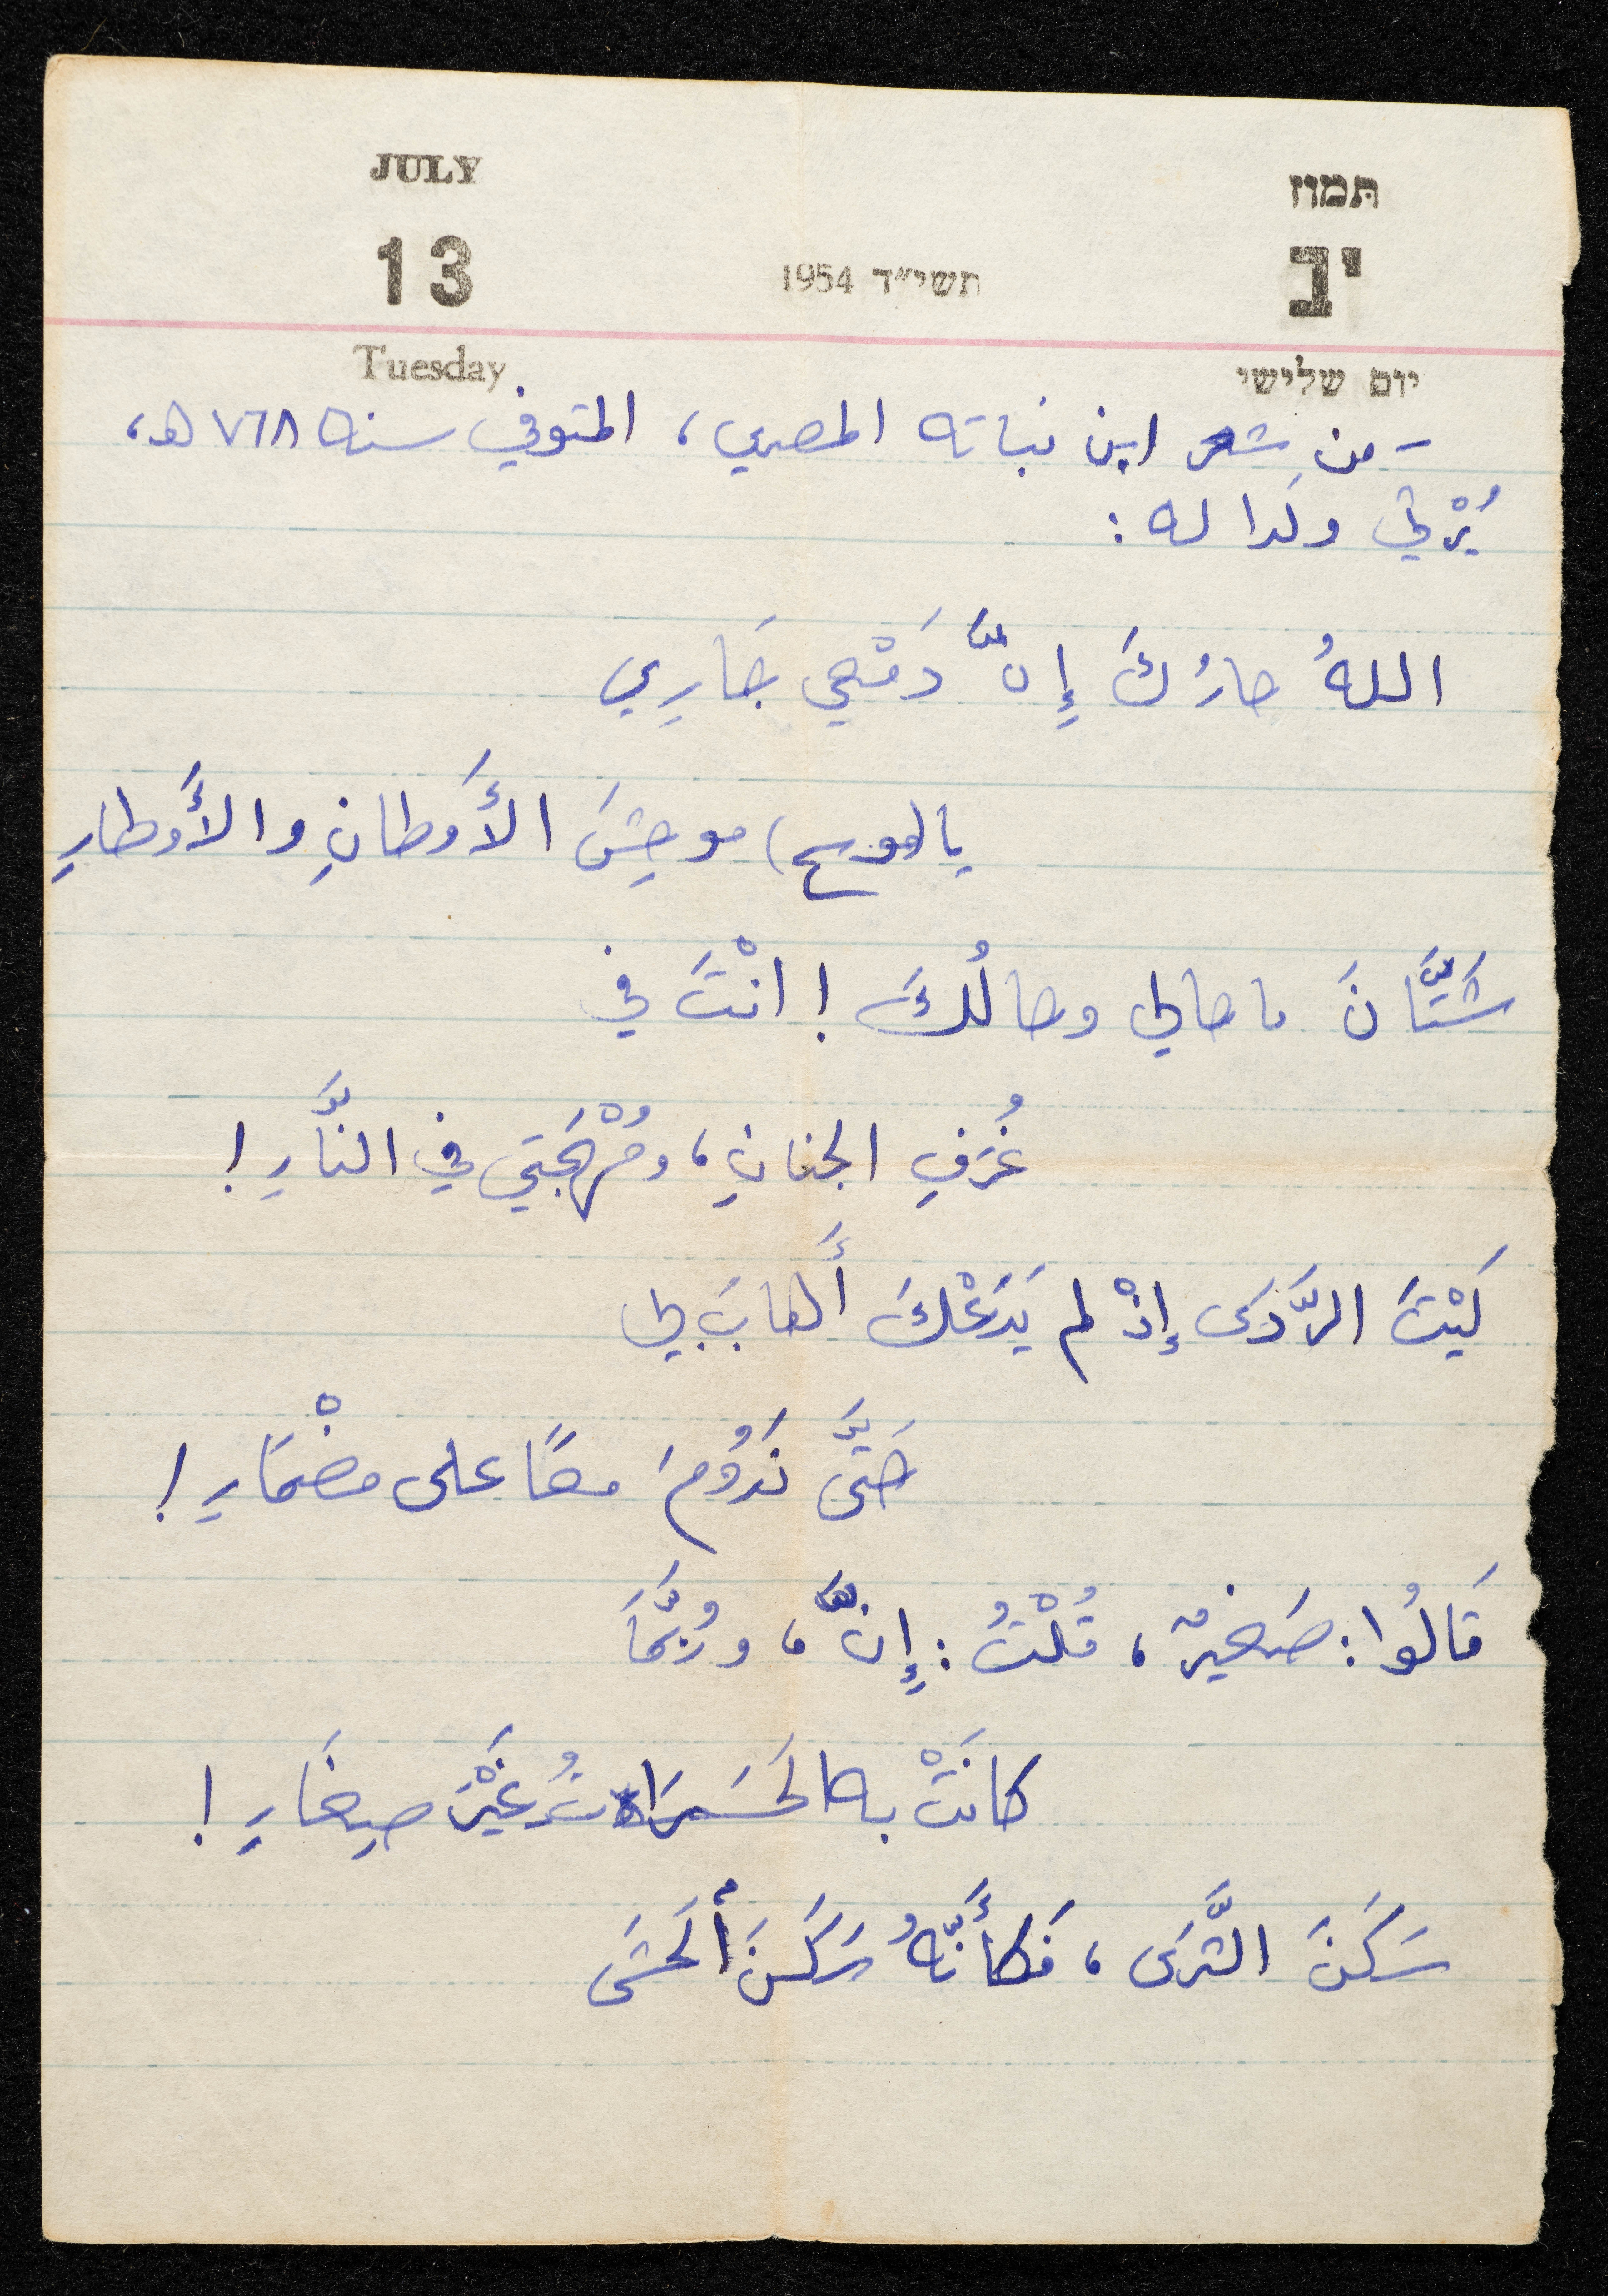 JULY תמוז
13 תשי״ד 1954 יב
Tuesday יום שלישי
- من شعر ابن نباته المصري، المتوفي سنه ٧٦٨ هـ،
يُرْثي ولدا له :
اللهُ جارُكَ إِنَّ دَمْعي جَارِي
يا موحِشَ الأَوطانِ والأَوطارِ
شَتَّانَ ما حالي وحالُكَ ! انْتَ في
غُرَفِ الجنانِ، ومُهْجَتي في النَّارِ !
لَيْتَ الرَّدَى إِذْ لم يَدَعْكَ أَهابَ بي
حَتَّى نَدُومَ معًا على مضْمَارِ !
قَالُوا : صَغيرٌ، قُلْتُ : إِنَّ، ورُبَّمَا
كانَتْ به الحَسَرَاتُ غَيْرَ صِغَارِ !
سَكَنَ الثَّرَى، فَكأَنَّهُ سَكَنَ ألحَشَى